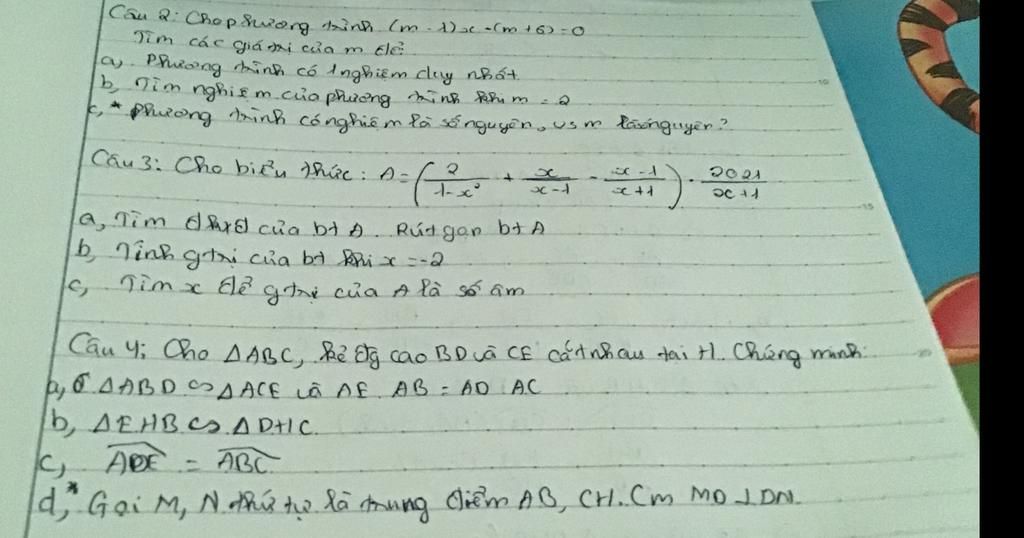 Câu 2: Cho phương trình (m-1)x-(m+6)=0
Tìm các giá trị của m để
a, Phương trình có 1 nghiệm duy nhất
b, Tìm nghiệm của phương trình khi m = 2
c,* Phương trình có nghiệm là số nguyên, vs m là số nguyên?
Câu 3: Cho biểu thức: A = (2/(1-x²) + x/(x-1) - (x-1)/(x+1)) · 2021/(x+1)
a, Tìm ĐKXĐ của bt A. Rút gọn bt A
b, Tính gtrị của bt khi x = -2
c, Tìm x để gtrị của A là số âm
Câu 4: Cho ΔABC, kẻ đg cao BD và CE cắt nhau tại H. Chứng minh:
a, ΔABD ∽ ΔACE và AE. AB = AD. AC
b, ΔEHB ∽ ΔDHC
c, ADE = ABC
d,* Gọi M, N thứ tự là trung điểm AB, CH. Cm MD ⊥ DN.